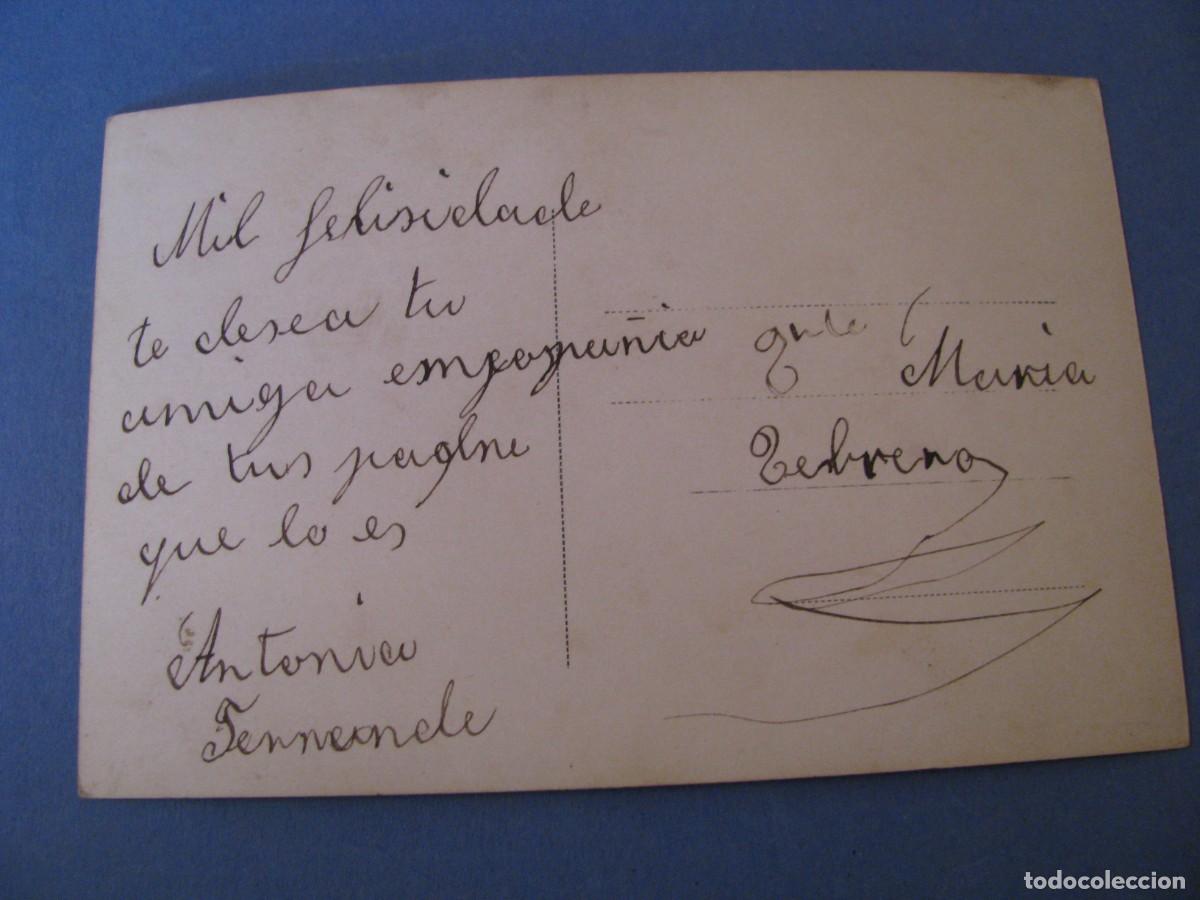 Mil felisidade
te desea tu
amiga empopañia
de tus padre
que lo es
Antonia
Fernande
Maria
Tebrero
todocoleccion